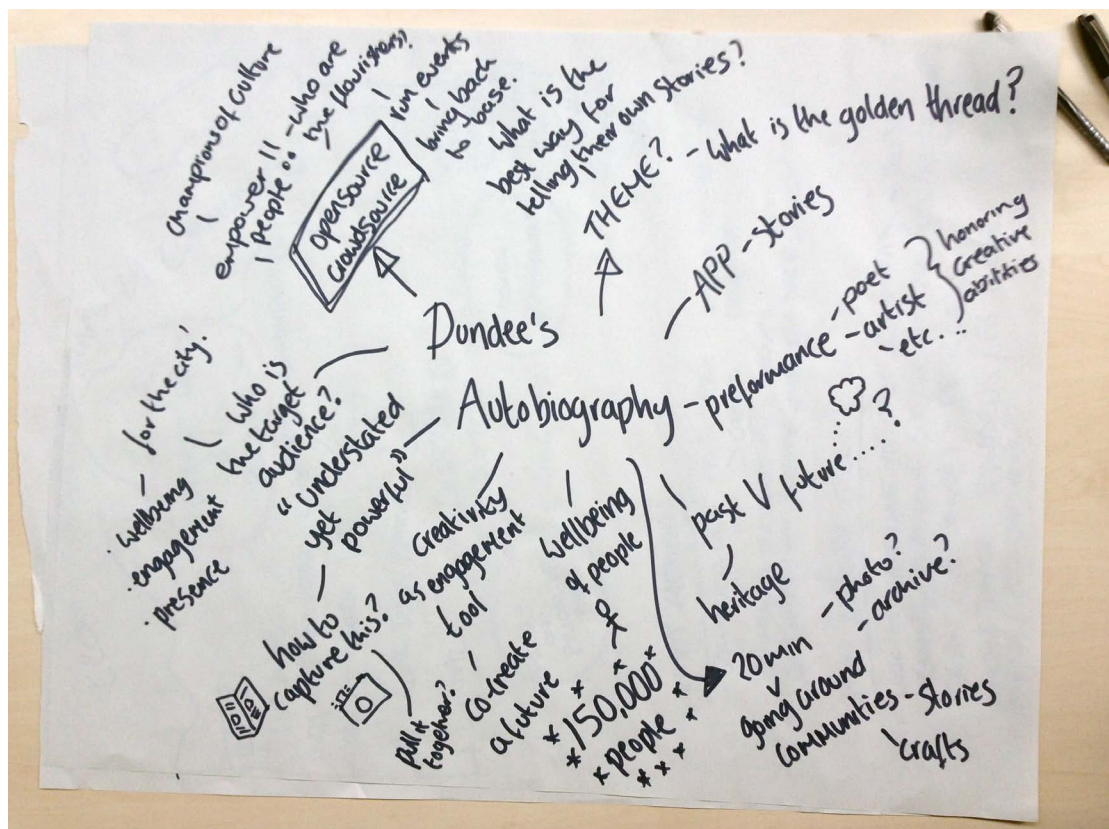 Dundee's
Autobiography
champions of culture
empower!!
people
- who are
the flourishers?
run events
bring back
to base.
opensource
crowdsource
what is the
best way for
telling their own stories?
THEME? - What is the golden thread?
APP - stories
- preformance - poet
- artist
etc...
honoring
creative
abilities
past V future....?
heritage
20 min - photo?
- archive?
going around
communities - stories
crafts
wellbeing
of people
*150,000*
people
creativity
as engagement
tool
co-create
a future
"understated
yet
powerful"
how to
capture this?
pull it
together?
who is
the target
audience?
- for the city!
· wellbeing
· engagement
· presence